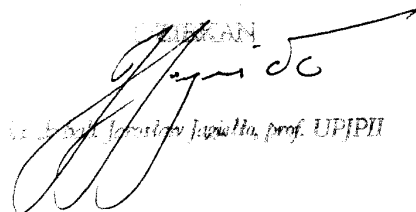 DZIEKAN
Jarosław Jagiełło, prof. UPJPII